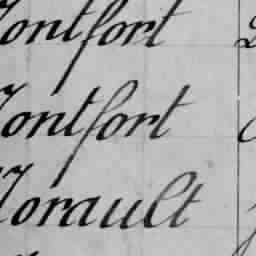 Montfort
Montfort
Morault